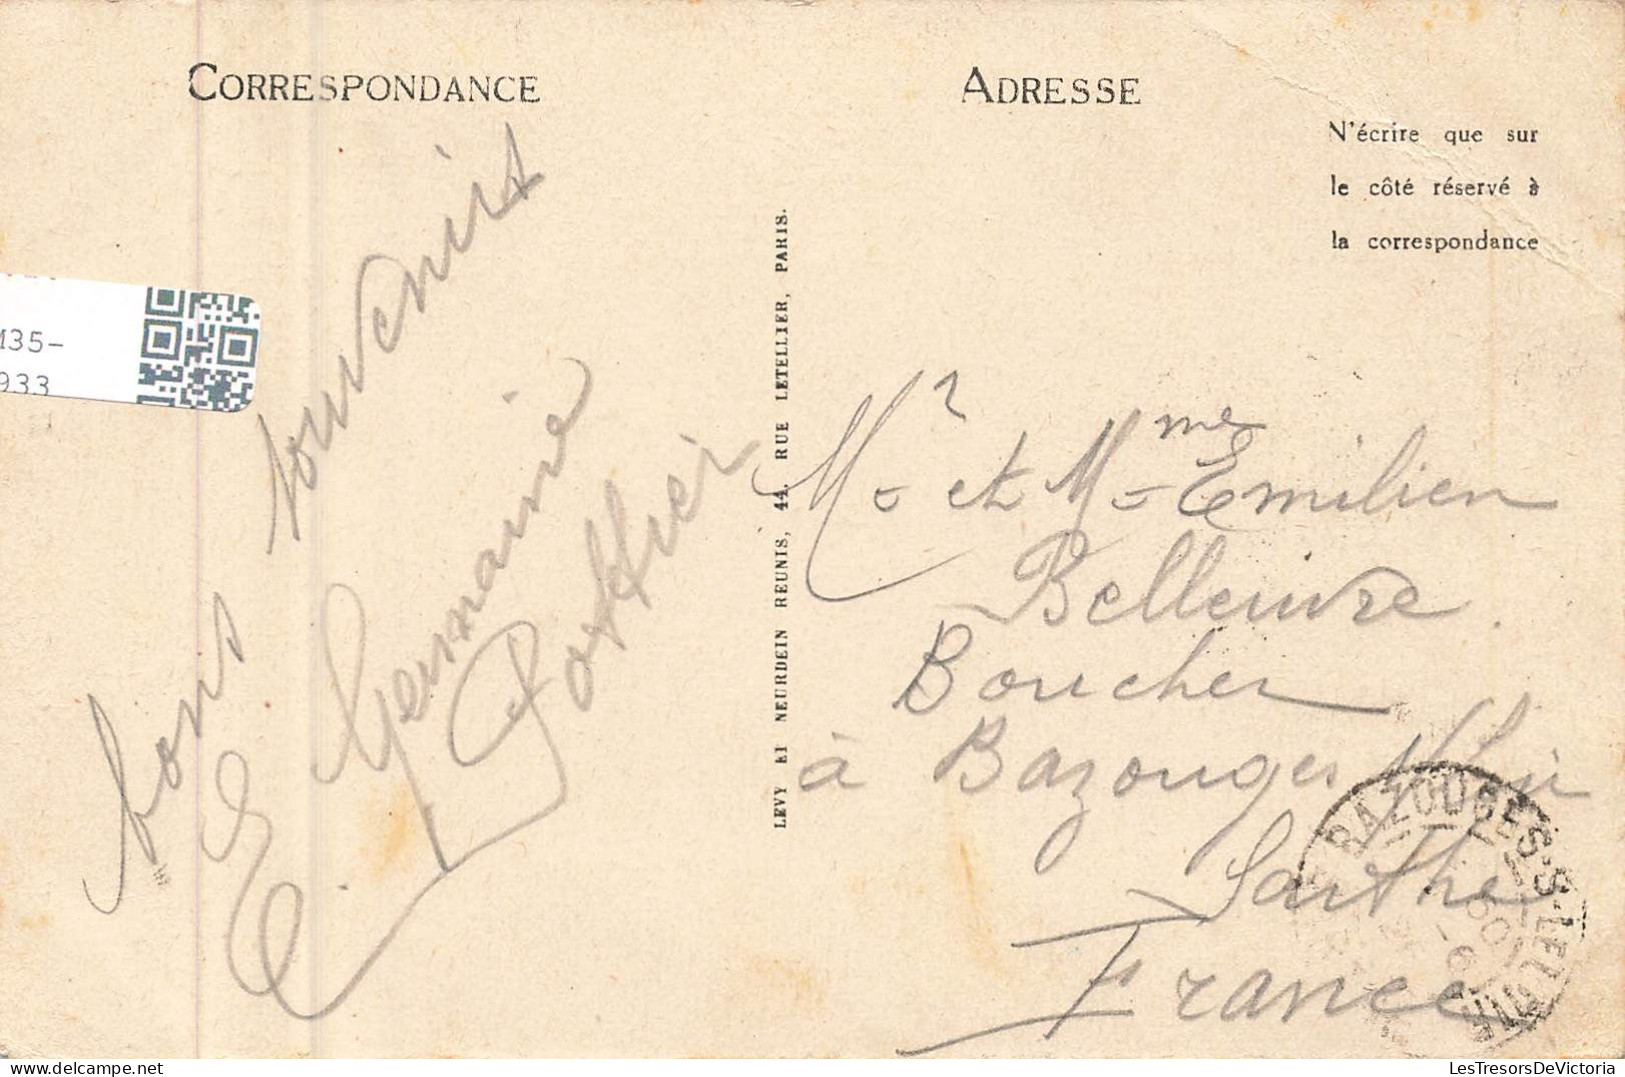 CORRESPONDANCE
ADRESSE
N'écrire que sur
le côté réservé à
la correspondance
bons souvenirs
E. Germaine
Pottier
LEVY ET NEURDEIN REUNIS, 44, RUE LETELLIER, PARIS.
Mr et Mme Emilien
Belleuvre
Boucher
à Bazouges
Sarthe
France
BAZOUGES-S-LE
M35-
933
LesTresorsDeVictoria.com